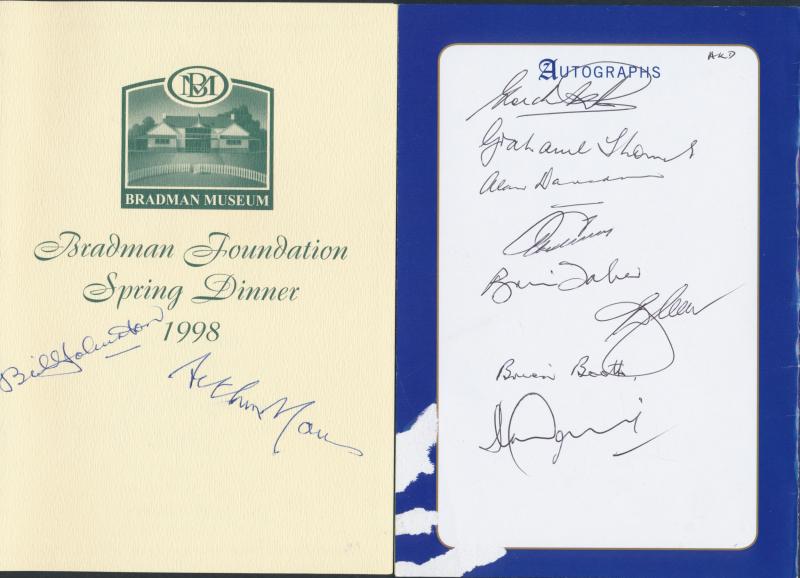 BM
BRADMAN MUSEUM
Bradman Foundation
Spring Dinner
1998
Bill Johnston
Arthur Morris
AUTOGRAPHS
Grahame Thomas
Alan Davidson
Brian Taber
Brian Booth